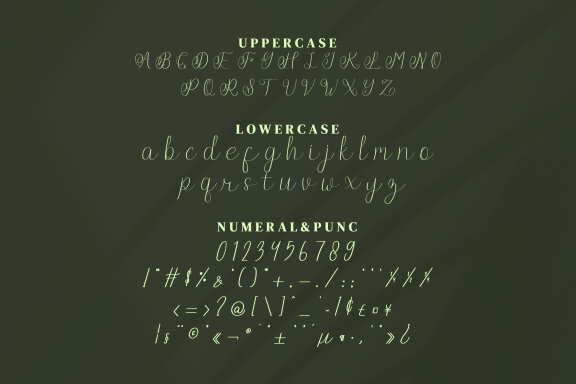 UPPERCASE
A B C D E F G H I J K L M N O
P Q R S T U V W X Y Z
LOWERCASE
a b c d e f g h i j k l m n o
p q r s t u v w x y z
NUMERAL&PUNC
0 1 2 3 4 5 6 7 8 9
! " # $ % & ' ( ) * + , - . / : ;
< = > ? @ [ \ ] ^ _ ` - | ¢ £ ¤ ¥
¦ § ¨ © ª « ¬ ® ¯ ° ± ² ³ ´ µ